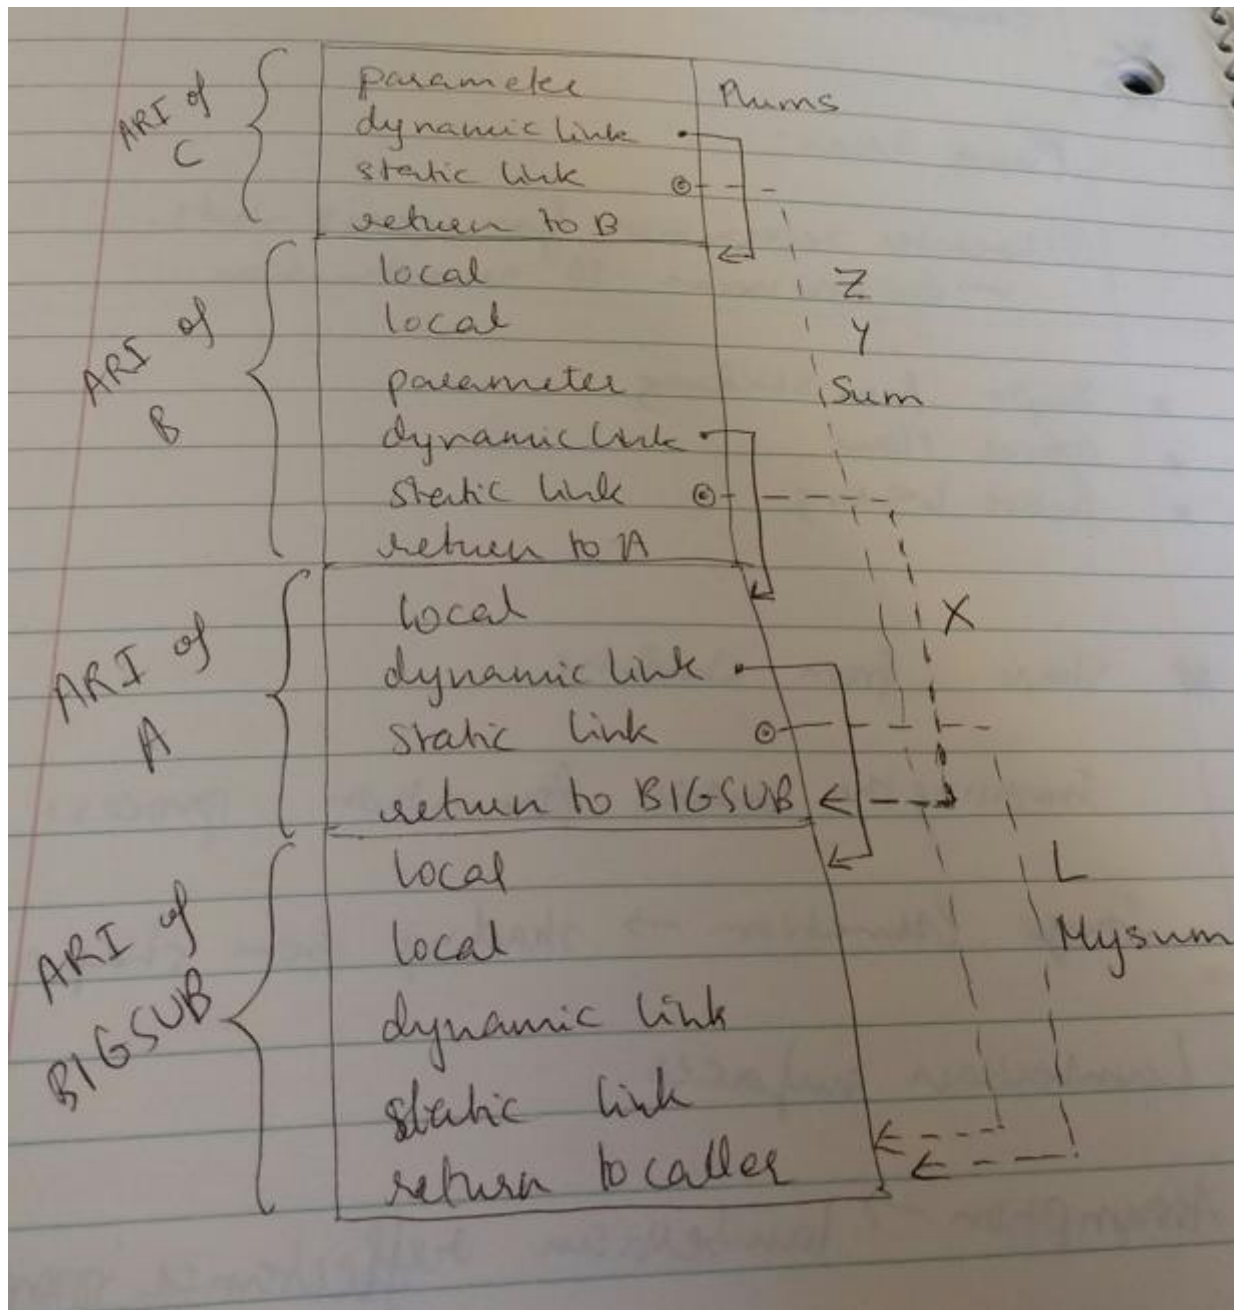 ARI of
C
parameter Plums
dynamic link
static link
return to B
ARI of
B
local Z
local Y
parameter Sum
dynamic link
static link
return to A
ARI of
A
local X
dynamic link
static link
return to BIGSUB
ARI of
BIGSUB
local L
local Mysum
dynamic link
static link
return to caller